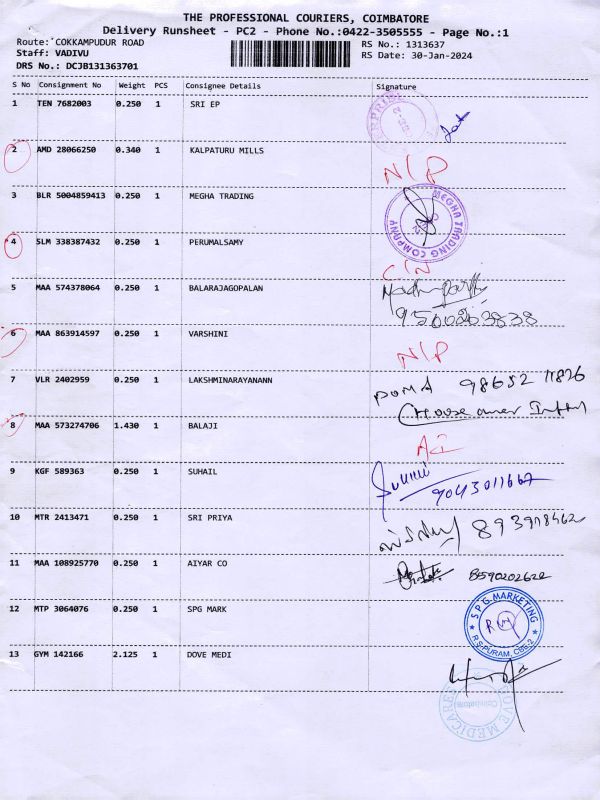 THE PROFESSIONAL COURIERS, COIMBATORE
Delivery Runsheet - PC2 - Phone No.:0422-3505555 - Page No.:1
Route: COKKAMPUDUR ROAD
Staff: VADIVU
DRS No.: DCJB131363701
RS No.: 1313637
RS Date: 30-Jan-2024
S No Consignment No Weight PCS Consignee Details Signature
1 TEN 7682003 0.250 1 SRI EP
2 AMD 28066250 0.340 1 KALPATURU MILLS
N/P
3 BLR 5004859413 0.250 1 MEGHA TRADING
MEGHA TRADING COMPANY
4 SLM 338387432 0.250 1 PERUMALSAMY
C/N
5 MAA 574378064 0.250 1 BALARAJAGOPALAN
9500203838
6 MAA 863914597 0.250 1 VARSHINI
N/P
7 VLR 2402959 0.250 1 LAKSHMINARAYANANN
98652 11826
(House owner
8 MAA 573274706 1.430 1 BALAJI
9 KGF 589363 0.250 1 SUHAIL
9043011667
10 MTR 2413471 0.250 1 SRI PRIYA
11 MAA 108925770 0.250 1 AIYAR CO
8590202622
12 MTP 3064076 0.250 1 SPG MARK
SPG MARKETING
R.S.PURAM, CBE-2
13 GYM 142166 2.125 1 DOVE MEDI
DOVE MEDICARES
Coimbatore